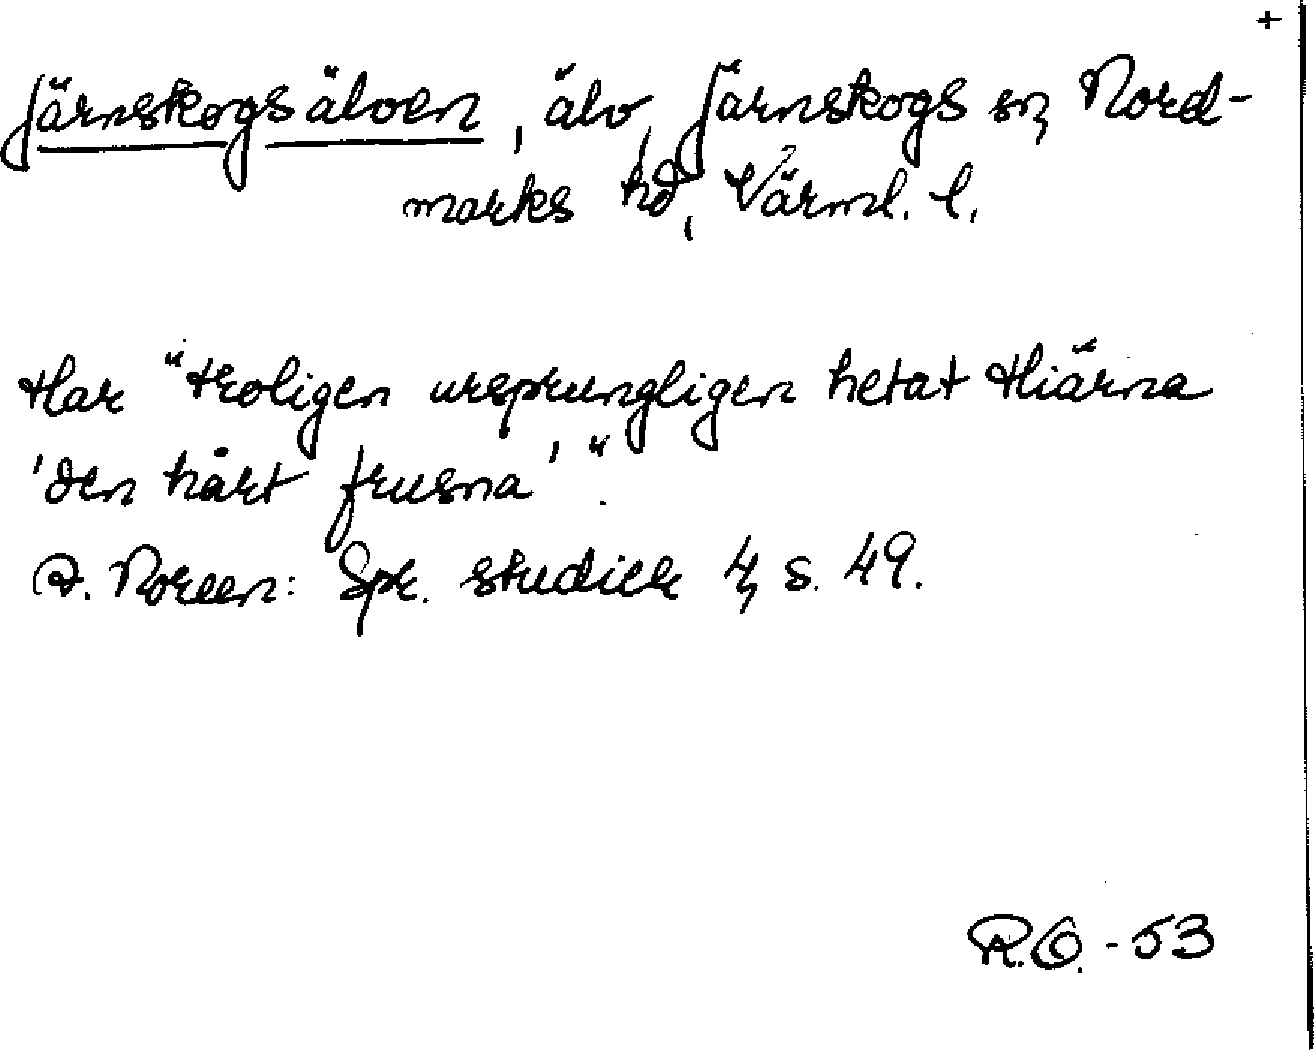 +
Järnskogsälven, älv, Järnskogs sn, Nord-
marks hd, Värml. l.
Har "troligen ursprungligen hetat Hiärna
'den hårt frusna'".
A. Noreen: Spr. studier 4, s. 49.
R.O. - 53